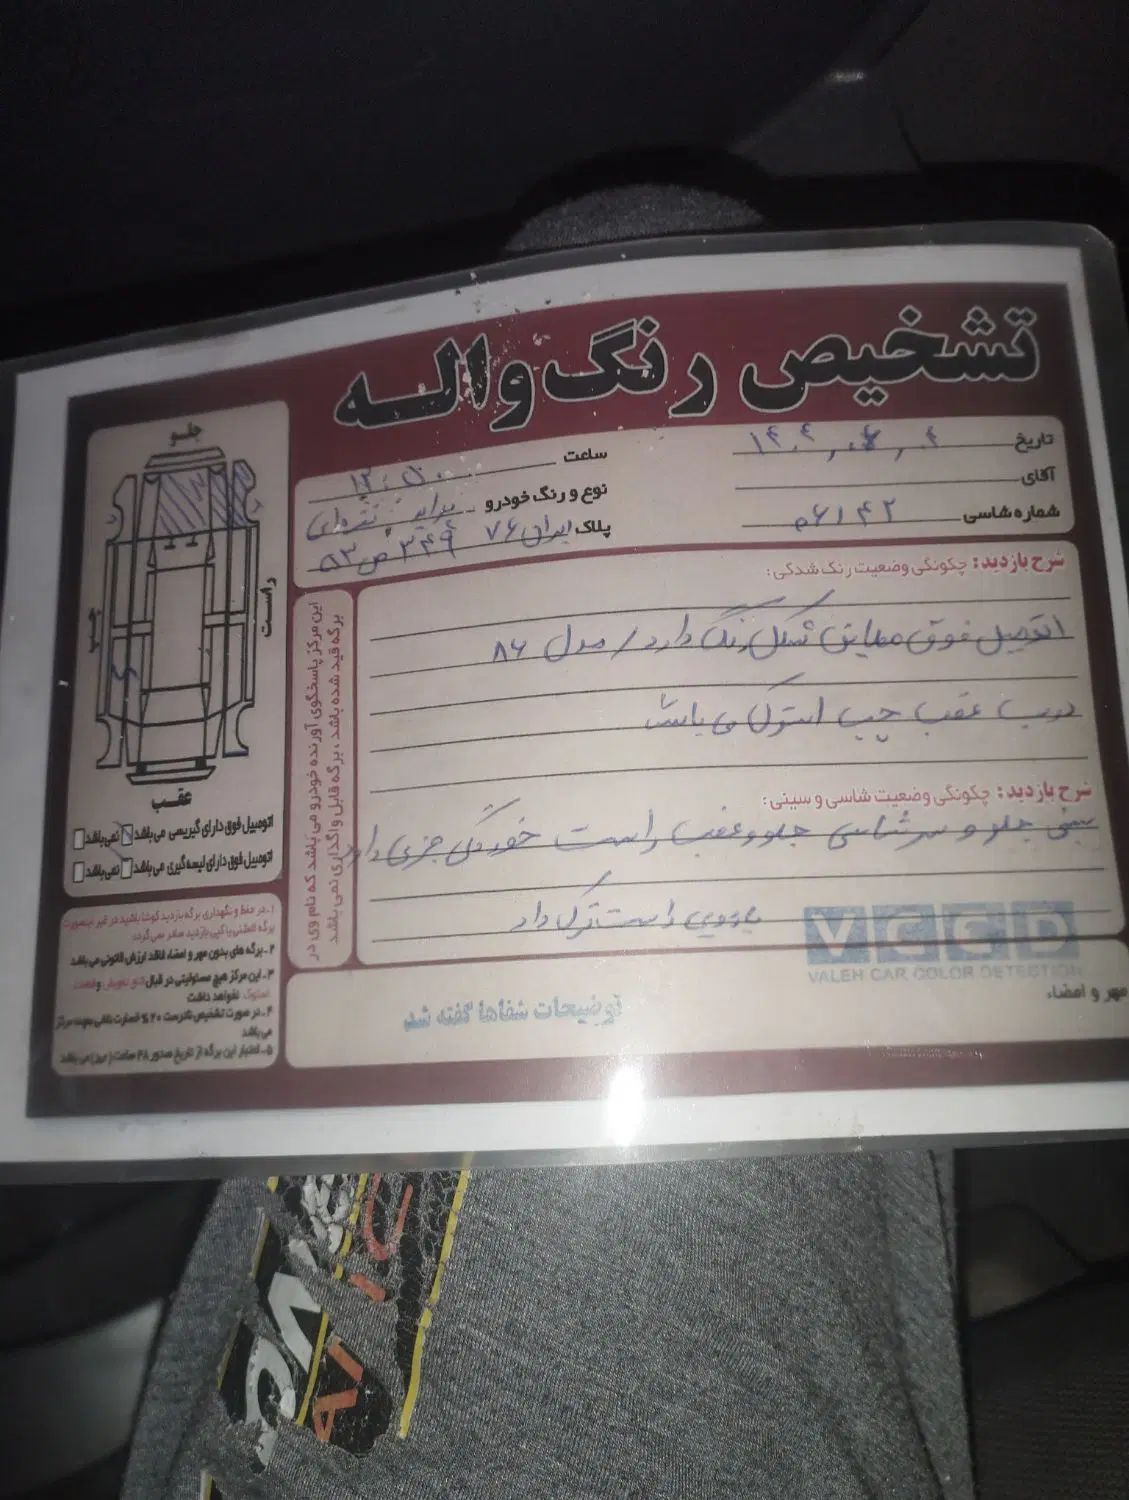 تشخیص رنگ واله
تاریخ
ساعت ۱۲:۵۰
آقای
نوع و رنگ خودرو پراید نقره‌ای
شماره شاسی ۶۱۴۲
پلاک ایران ۷۶ ۳۴۹ ص ۵۲
جلو
راست
چپ
عقب
اتومبیل فوق دارای گیریسی می باشد نمی باشد
اتومبیل فوق دارای لیسه گیری می باشد نمی باشد
این مرکز پاسخگوی آورنده خودرو می باشد که نام وی در
برگه قید شده باشد ، برگه قابل واگذاری نمی باشد
شرح بازدید: چگونگی وضعیت رنگ شدگی:
اتومبیل فوق مطابق شکل رنگ دارد / مدل ۸۶
درب عقب چپ استوک می باشد
شرح بازدید: چگونگی وضعیت شاسی و سینی:
سینی جلو و سرشاسی جلو و عقب راست خوردگی جزی دارد
راست ترک دارد
VCCD
VALEH CAR COLOR DETECTION
مهر و امضاء
توضیحات شفاها گفته شد
۱- در حفظ و نگهداری برگه بازدید کوشا باشید در غیر اینصورت
برگه المثنی یا کپی بازدید صادر نمی گردد
۲- برگه های بدون مهر و امضاء فاقد ارزش قانونی می باشد
۳- این مرکز هیچ مسئولیتی در قبال تعویض و قطعات
استوک نخواهد داشت
۴- در صورت تشخیص نادرست ۲۰٪ خسارت بعهده مرکز
می باشد
۵- اعتبار این برگه از تاریخ صدور ۴۸ ساعت می باشد